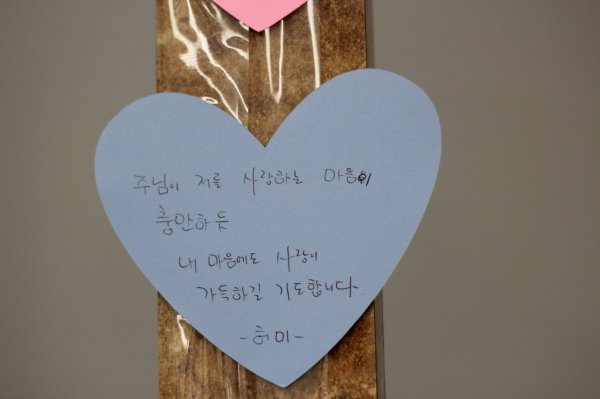 주님이 저를 사랑하는 마음이
충만하듯
내 마음에도 사랑이
가득하길 기도합니다
-허미-